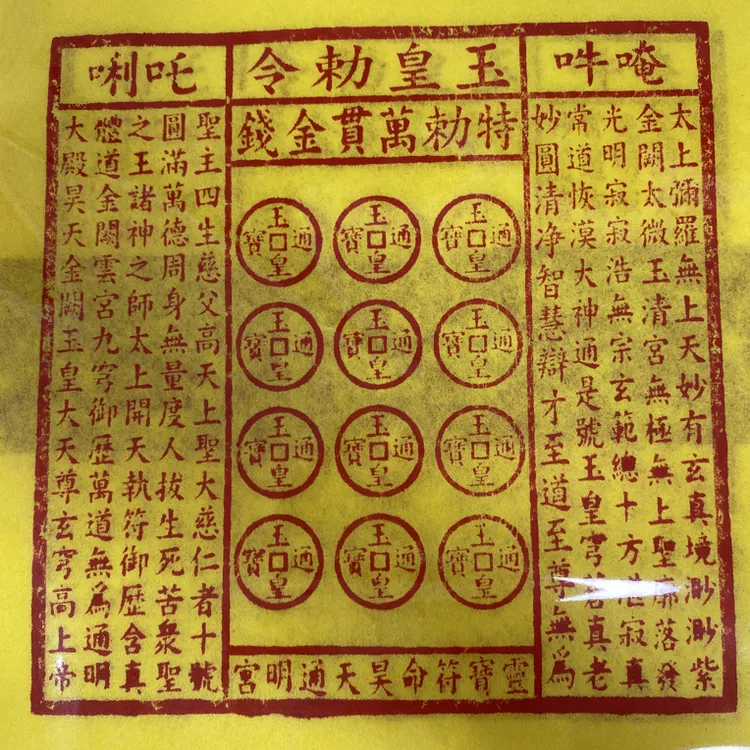 唵吽
太上彌羅無上天妙有玄真境渺渺紫
金闕太微玉清宮無極無上聖廓落發
光明寂寂浩無宗玄範總十方湛寂真
常道恢漠大神通是號玉皇穹蒼真老
妙圓清净智慧辯才至道至尊無為
玉皇勅令
特勅萬貫金錢
玉皇通寶
玉皇通寶
玉皇通寶
玉皇通寶
玉皇通寶
玉皇通寶
玉皇通寶
玉皇通寶
玉皇通寶
玉皇通寶
玉皇通寶
玉皇通寶
靈寶符命昊天通明宮
吒唎
聖主四生慈父高天上聖大慈仁者十號
圓滿萬德周身無量度人拔生死苦衆聖
之王諸神之師太上開天執符御歷含真
體道金闕雲宮九穹御歷萬道無為通明
大殿昊天金闕玉皇大天尊玄穹高上帝